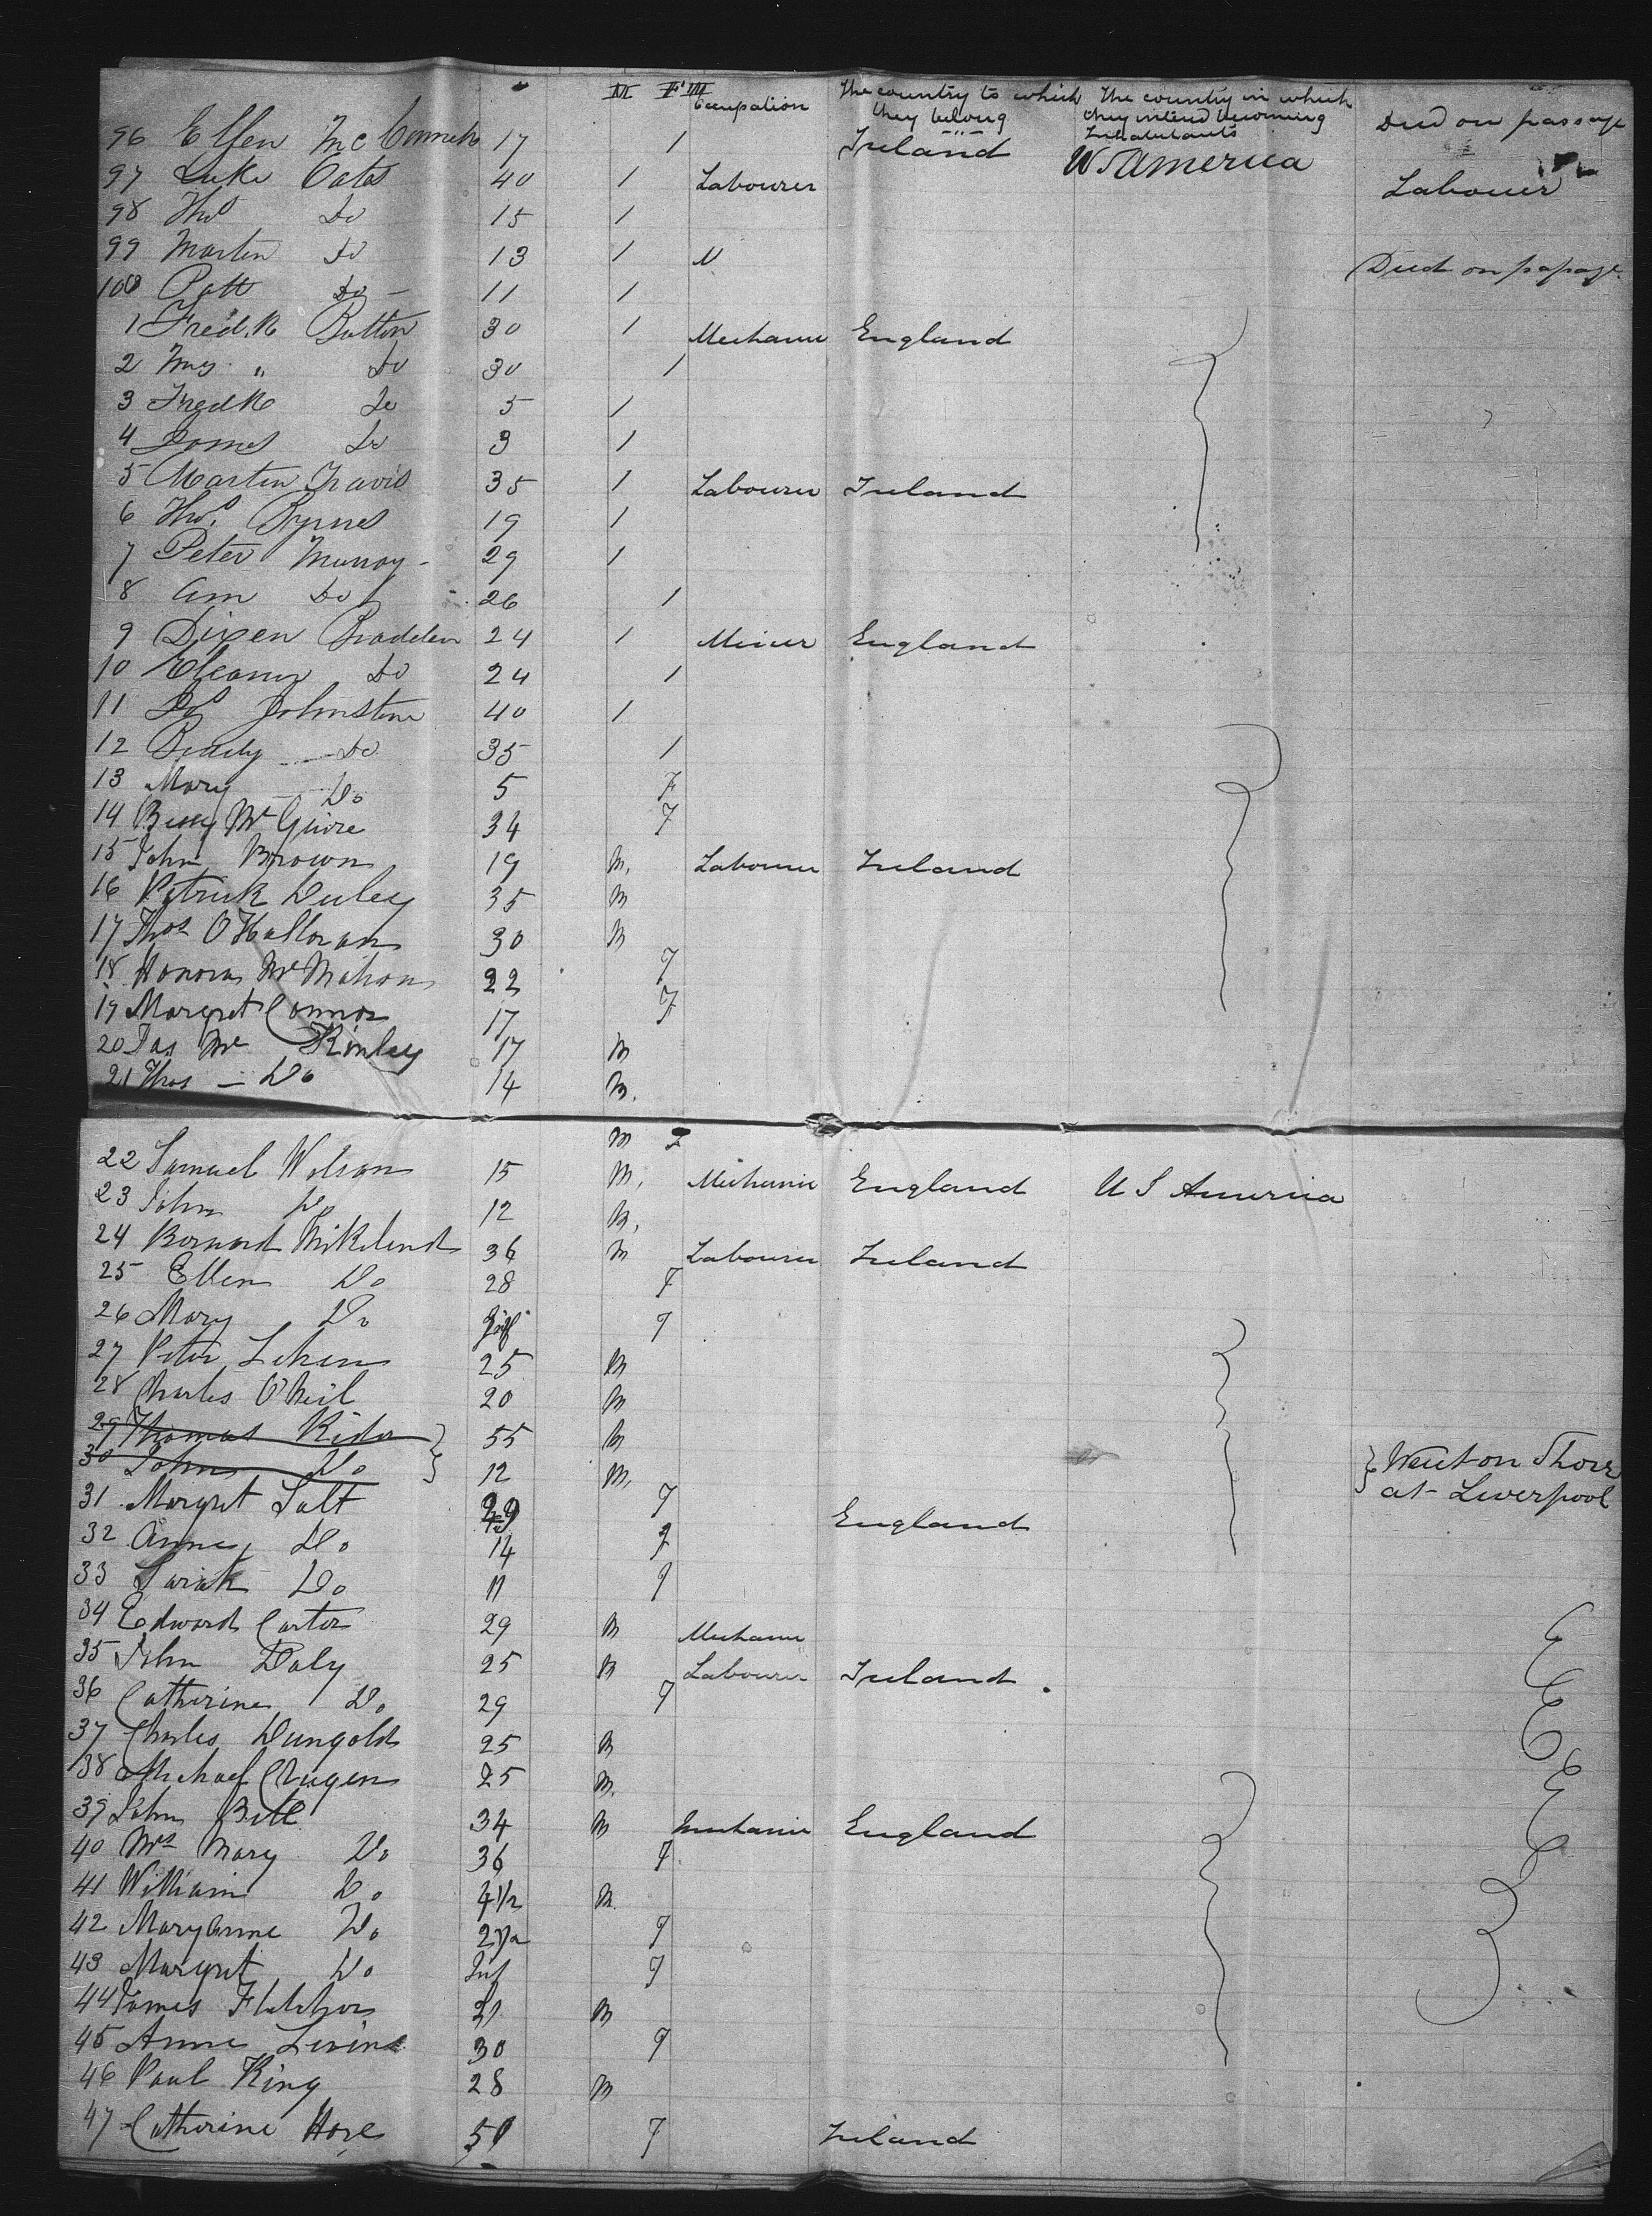 M F Occupation The country to which they belong The country in which they intend becoming Inhabitants Died on passage
96 Ellen McCormick 17 1 Ireland U S America
97 Luke Oates 40 1 Labourer Labourer
98 Thos Do 15 1
99 Martin Do 13 1 Died on passage
100 Patt Do 11 1
1 Fredk Button 30 1 Mechanic England
2 Mrs " Do 30 1
3 Fredk Do 5 1
4 James Do 3 1
5 Martin Travis 35 1 Labourer Ireland
6 Thos Byrnes 19 1
7 Peter Murray 29 1
8 Ann Do 26 1
9 Dixen 24 1 Miner England
10 Eleanor Do 24 1
11 Johnstone 40 1
12 Do 35 1
13 Mary Do 5 F
14 Bessy Mc Guire 34 F
15 John Brown 19 M. Labourer Ireland
16 Patrick Duley 35 M
17 Thos O'Halloran 30 M
18 Honora McMahon 22 F
19 Margret Connor 17 F
20 Jas Mc Kinley 17 M
21 Thos — Do 14 M.
M F
22 Samuel Wilson 15 M, Mechanic England U S America
23 John Do 12 M,
24 Bernard 36 M Labourer Ireland
25 Ellen Do 28 F
26 Mary Do Inf F
27 Peter 25 M
28 Charles O'Neil 20 M
29 Thomas Rider 55 M
30 John Do 12 M, Went on Shore
at Liverpool
31 Margret Salt F England
32 Anne Do 14 F
33 Sarah Do 11 F
34 Edward Carter 29 M Mechanic
35 John Daly 25 M Labourer Ireland
36 Catherine Do 29 F
37 Charles Dungold 25 M
38 Michael 25 M.
39 John Bell 34 M Mechanic England
40 Mrs Mary Do 36 F
41 William Do 4 1/2 M.
42 Mary Anne Do 2 1/2 F
43 Margret Do Inf F
44 James Fletcher 21 M
45 Anne Levine 30 F
46 Paul King 28 M
47 Catherine Hore 50 F Ireland